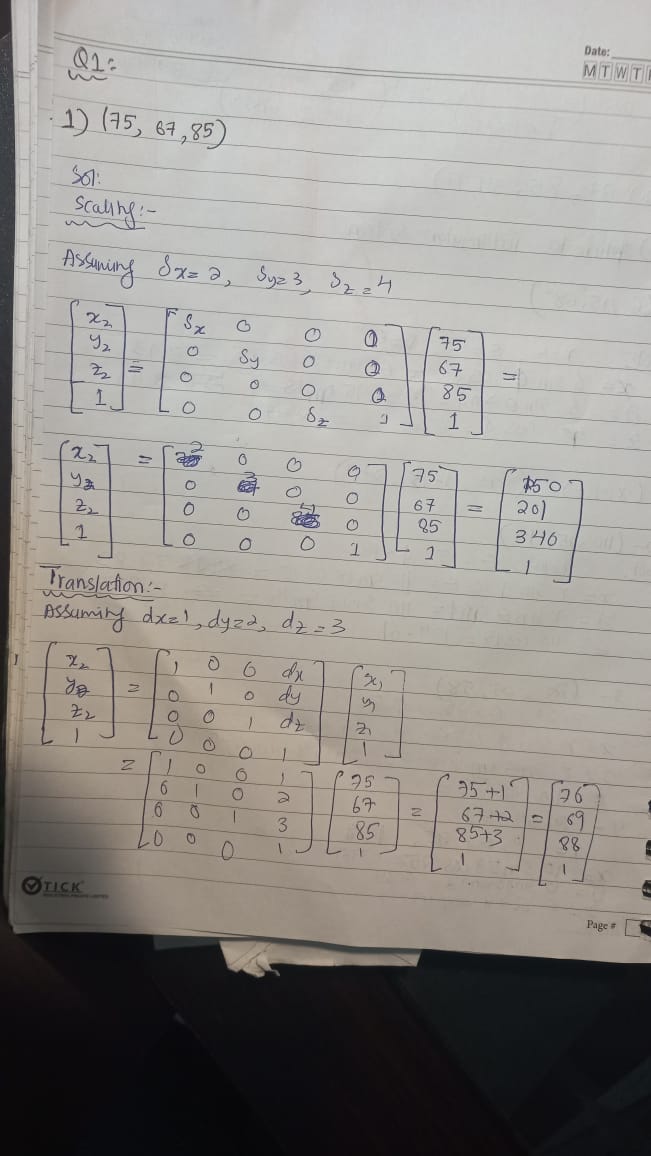 Date:
M T W T F
Q1:
1) (75, 67, 85)
Sol:
Scaling:-
Assuming Sx= 2, Sy= 3, Sz = 4
[x2 y2 z2 1] = [Sx 0 0 0
0 Sy 0 0
0 0 0 0
0 0 Sz 1] [75 67 85 1] =
[x2 y2 z2 1] = [2 0 0 0
0 3 0 0
0 0 4 0
0 0 0 1] [75 67 85 1] = [150 201 340 1]
Translation:-
Assuming dx=1, dy=2, dz = 3
[x2 y2 z2 1] = [1 0 0 dx
0 1 0 dy
0 0 1 dz
0 0 0 1] [x1 y1 z1 1]
= [1 0 0 1
0 1 0 2
0 0 1 3
0 0 0 1] [75 67 85 1] = [75+1 67+2 85+3 1] = [76 69 88 1]
TICK
Page #